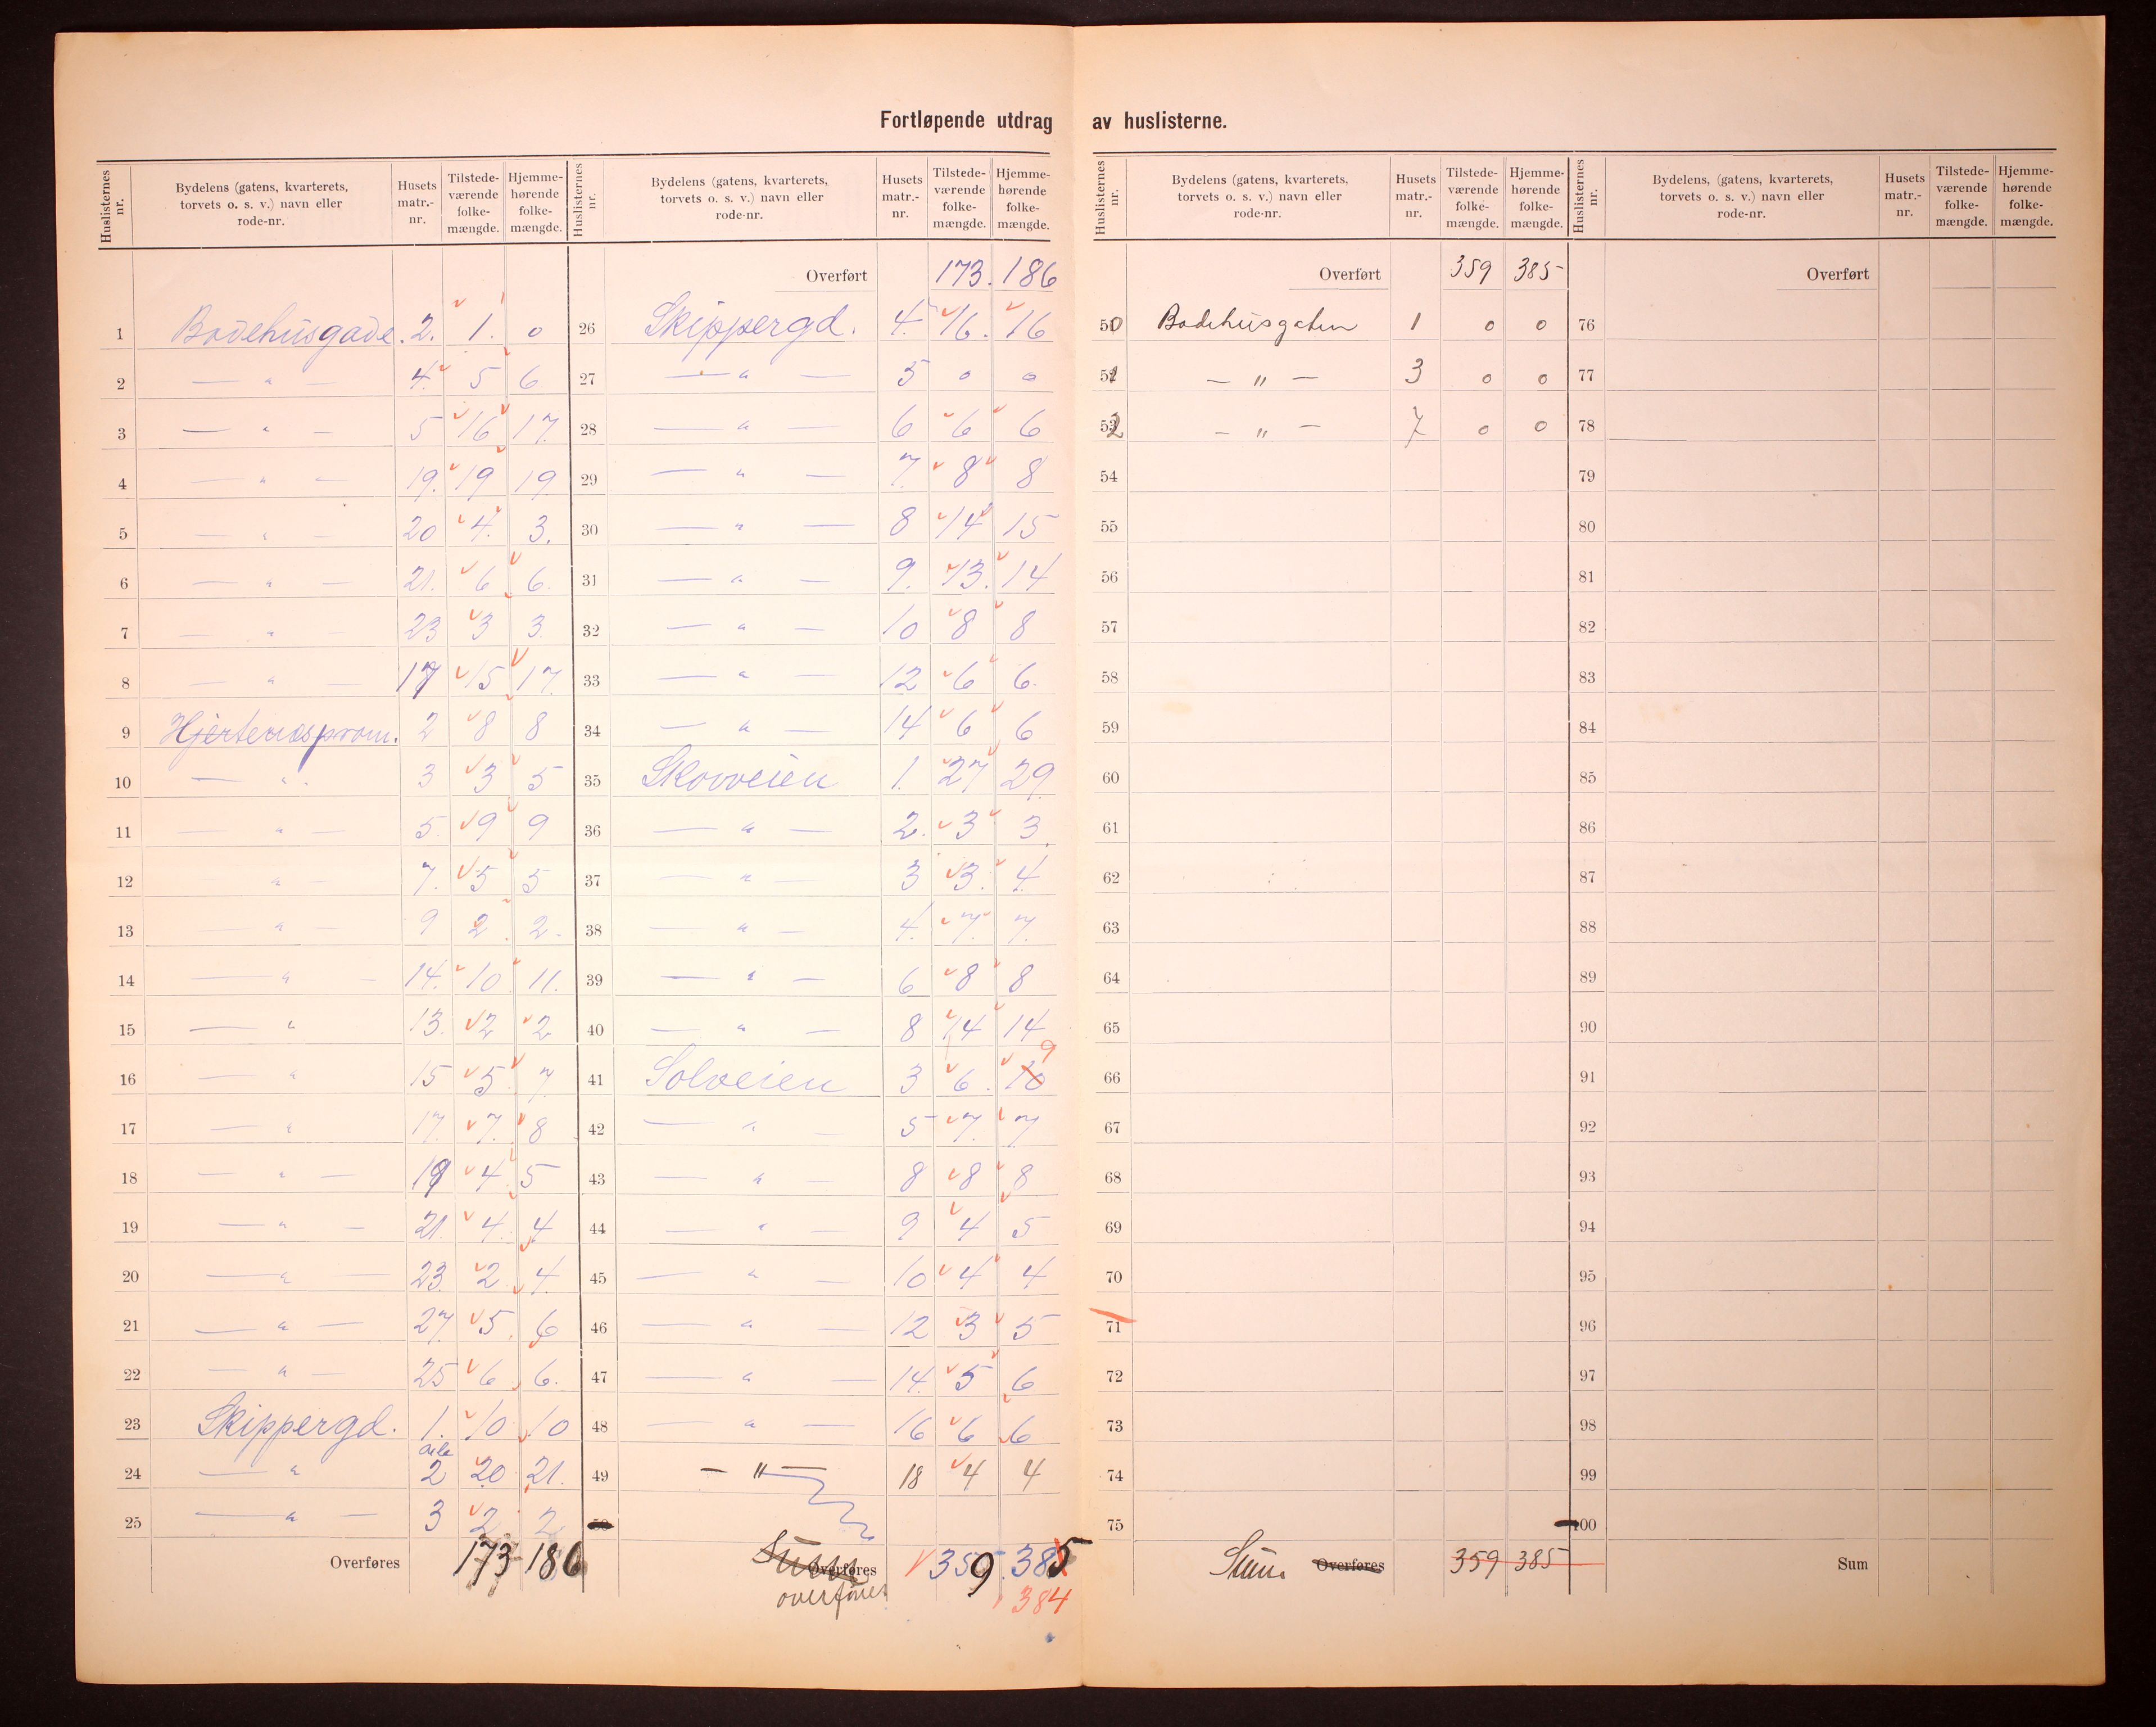 Fortløpende utdrag av huslisterne.
Huslisternes nr. | Bydelens (gatens, kvarterets, torvets o. s. v.) navn eller rode-nr. | Husets matr.-nr. | Tilstede-værende folke-mængde. | Hjemme-hørende folke-mængde.
1 Bodehusgade. 2. 1. 0
2 — " — 4. 5 6
3 — " — 5 16 17.
4 — " — 19. 19 19
5 — " — 20 4. 3.
6 — " — 21. 6 6.
7 — " — 23 3 3.
8 — " — 17 15 17.
9 Hjertenesprom. 2 8 8
10 — " 3 3 5
11 — " — 5. 9 9
12 — " — 7. 5 5
13 — " — 9 2 2.
14 — " — 14. 10 11.
15 — " 13. 2 2
16 — " 15 5. 7.
17 — " 17. 7. 8
18 — " — 19 4 5
19 — " — 21. 4. 4
20 — " — 23. 2 4.
21 — " — 27. 5. 6
22 — " — 25 6 6.
23 Skippergd. 1. 10 10
24 — " 2 20 21.
25 — " — 3 2 2
Overføres 173 186
Huslisternes nr. | Bydelens (gatens, kvarterets, torvets o. s. v.) navn eller rode-nr. | Husets matr.-nr. | Tilstede-værende folke-mængde. | Hjemme-hørende folke-mængde.
Overført 173. 186
26 Skippergd. 4. 16. 16
27 — " — 5 0 0
28 — " — 6 6 6
29 — " — 7. 8 8
30 — " — 8 14 15
31 — " — 9. 13. 14
32 — " — 10 8 8
33 — " — 12 6 6.
34 — " — 14 6 6
35 Skovveien 1. 27 29.
36 — " — 2. 3 3.
37 — " — 3 3. 4.
38 — " — 4. 7. 7.
39 — " — 6 8 8
40 — " — 8 14 14
41 Solveien 3 6. 10 9
42 — " — 5 7. 7
43 — " — 8 8 8
44 — " — 9 4 5
45 — " — 10 4 4
46 — " — 12 3 5
47 — " — 14. 5 6
48 — " — 16 6 6
49 — " — 18 4 4
50
Sum Overføres 359. 385
overføres 384
Huslisternes nr. | Bydelens (gatens, kvarterets, torvets o. s. v.) navn eller rode-nr. | Husets matr.-nr. | Tilstede-værende folke-mængde. | Hjemme-hørende folke-mængde.
Overført 359 385
50 Bodehusgaten 1 0 0
51 — " — 3 0 0
52 — " — 7 0 0
54
55
56
57
58
59
60
61
62
63
64
65
66
67
68
69
70
71
72
73
74
75
Sum Overføres 359 385
Huslisternes nr. | Bydelens, (gatens, kvarterets, torvets o. s. v.) navn eller rode-nr. | Husets matr.-nr. | Tilstede-værende folke-mængde. | Hjemme-hørende folke-mængde.
Overført
76
77
78
79
80
81
82
83
84
85
86
87
88
89
90
91
92
93
94
95
96
97
98
99
100
Sum